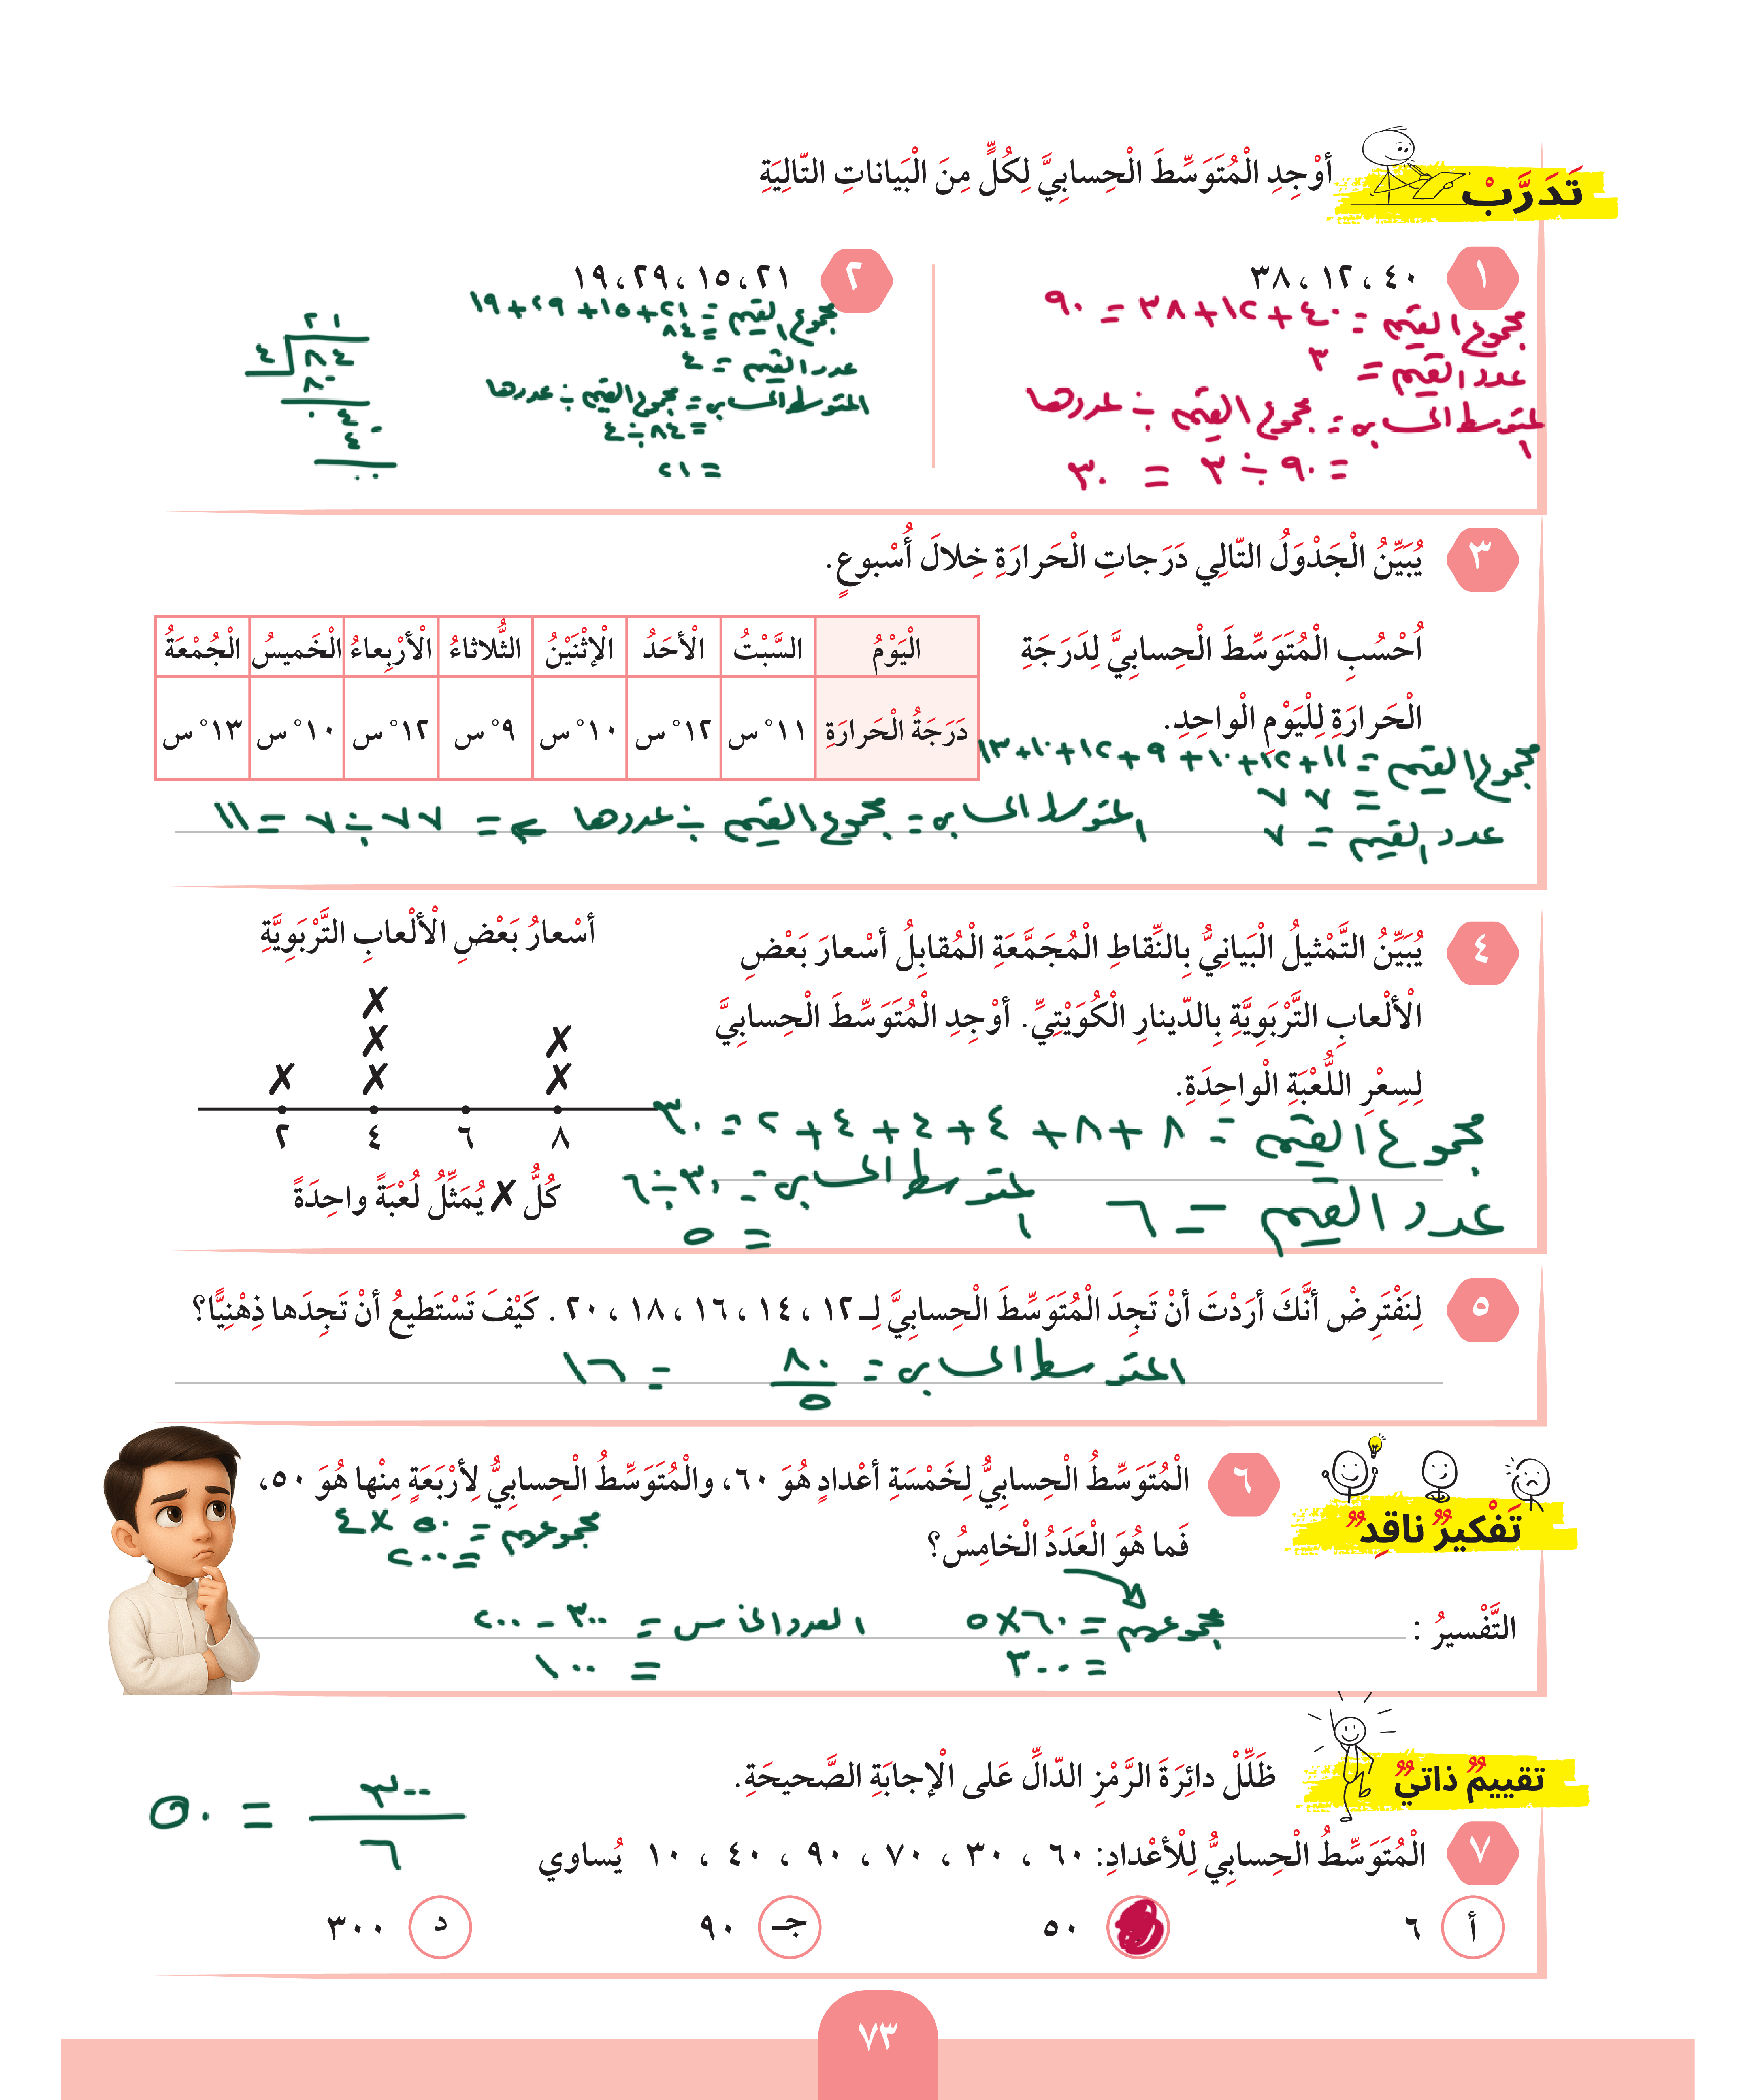 تَدَرَّبْ
أَوْجِدِ الْمُتَوَسِّطَ الْحِسابِيَّ لِكُلٍّ مِنَ الْبَياناتِ التّالِيَةِ
١
٤٠ ، ١٢ ، ٣٨
مجموع القيم = ٤٠ + ١٢ + ٣٨ = ٩٠
عدد القيم = ٣
المتوسط الحسابي = مجموع القيم ÷ عددها
= ٩٠ ÷ ٣ = ٣٠
٢
٢١ ، ١٥ ، ٢٩ ، ١٩
مجموع القيم = ٢١ + ١٥ + ٢٩ + ١٩
= ٨٤
عدد القيم = ٤
المتوسط الحسابي = مجموع القيم ÷ عددها
= ٨٤ ÷ ٤
= ٢١
٢١
٤ ٨٤
٨٠
٠٤
٤
٠٠
٣
يُبَيِّنُ الْجَدْوَلُ التّالِي دَرَجاتِ الْحَرارَةِ خِلالَ أُسْبوعٍ.
اُحْسُبِ الْمُتَوَسِّطَ الْحِسابِيَّ لِدَرَجَةِ
الْحَرارَةِ لِلْيَوْمِ الْواحِدِ.
الْيَوْمُ السَّبْتُ الْأَحَدُ الْإِثْنَيْنُ الثُّلاثاءُ الْأَرْبِعاءُ الْخَميسُ الْجُمْعَةُ
دَرَجَةُ الْحَرارَةِ ١١° س ١٢° س ١٠° س ٩° س ١٢° س ١٠° س ١٣° س
مجموع القيم = ١١ + ١٢ + ١٠ + ٩ + ١٢ + ١٠ + ١٣
= ٧٧
عدد القيم = ٧
المتوسط الحسابي = مجموع القيم ÷ عددها = ٧٧ ÷ ٧ = ١١
٤
يُبَيِّنُ التَّمْثيلُ الْبَيانِيُّ بِالنِّقاطِ الْمُجَمَّعَةِ الْمُقابِلُ أَسْعارَ بَعْضِ
الْأَلْعابِ التَّرْبَوِيَّةِ بِالدّينارِ الْكُوَيْتِيِّ. أَوْجِدِ الْمُتَوَسِّطَ الْحِسابِيَّ
لِسِعْرِ اللُّعْبَةِ الْواحِدَةِ.
أَسْعارُ بَعْضِ الْأَلْعابِ التَّرْبَوِيَّةِ
✗
✗ ✗
✗ ✗ ✗
٢ ٤ ٦ ٨
كُلُّ ✗ يُمَثِّلُ لُعْبَةً واحِدَةً
مجموع القيم = ٨ + ٨ + ٤ + ٤ + ٤ + ٢ = ٣٠
عدد القيم = ٦
المتوسط الحسابي = ٣٠ ÷ ٦
= ٥
٥
لِنَفْتَرِضْ أَنَّكَ أَرَدْتَ أَنْ تَجِدَ الْمُتَوَسِّطَ الْحِسابِيَّ لِـ ١٢ ، ١٤ ، ١٦ ، ١٨ ، ٢٠ . كَيْفَ تَسْتَطيعُ أَنْ تَجِدَها ذِهْنِيًّا؟
المتوسط الحسابي = ٨٠/٥ = ١٦
تَفْكيرٌ ناقِدٌ
٦
الْمُتَوَسِّطُ الْحِسابِيُّ لِخَمْسَةِ أَعْدادٍ هُوَ ٦٠، والْمُتَوَسِّطُ الْحِسابِيُّ لِأَرْبَعَةٍ مِنْها هُوَ ٥٠،
فَما هُوَ الْعَدَدُ الْخامِسُ؟
مجموعهم = ٥٠ × ٤
= ٢٠٠
التَّفْسيرُ :
مجموعهم = ٦٠ × ٥
= ٣٠٠
العدد الخامس = ٣٠٠ - ٢٠٠
= ١٠٠
تقييمٌ ذاتيٌّ
ظَلِّلْ دائِرَةَ الرَّمْزِ الدّالِّ عَلى الْإِجابَةِ الصَّحيحَةِ.
٧
الْمُتَوَسِّطُ الْحِسابِيُّ لِلْأَعْدادِ: ٦٠ ، ٣٠ ، ٧٠ ، ٩٠ ، ٤٠ ، ١٠ يُساوي
٣٠٠/٦ = ٥٠
أ ٦ ٥٠ جـ ٩٠ د ٣٠٠
٧٣